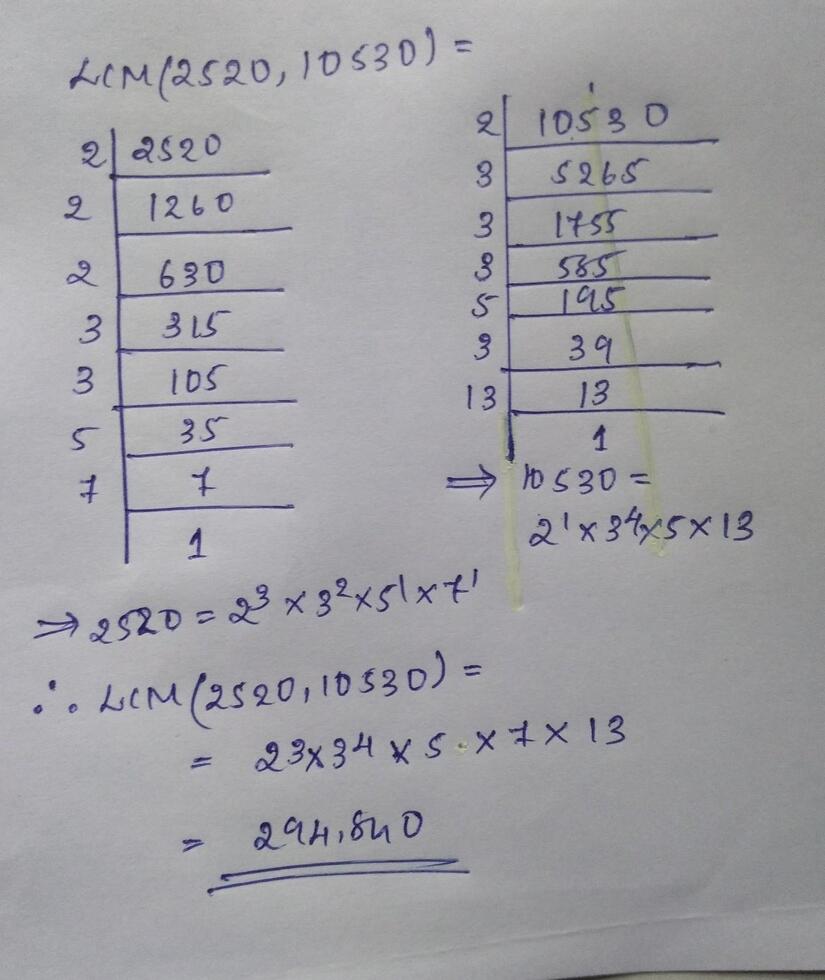 LCM(2520, 10530) =
2 | 2520
2 | 1260
2 | 630
3 | 315
3 | 105
5 | 35
7 | 7
1
2 | 10530
3 | 5265
3 | 1755
3 | 585
5 | 195
3 | 39
13 | 13
1
⇒ 10530 =
2¹ × 3⁴ × 5 × 13
⇒ 2520 = 2³ × 3² × 5¹ × 7¹
∴ LCM(2520, 10530) =
= 2³ × 3⁴ × 5 × 7 × 13
= 294,840